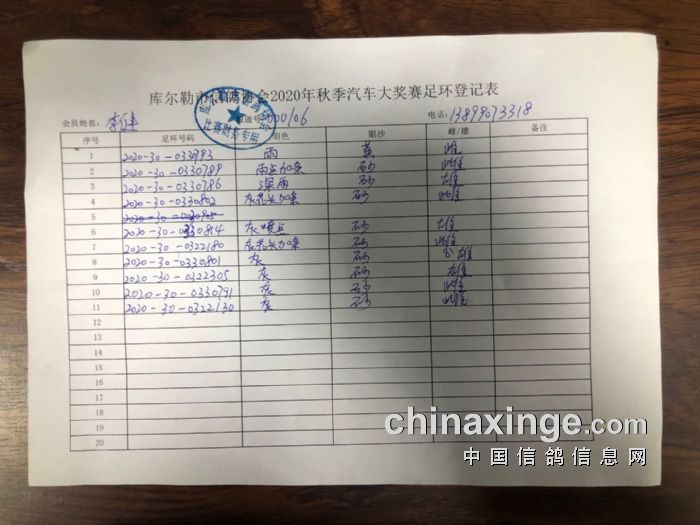 库尔勒市信鸽协会2020年秋季汽车大奖赛足环登记表
比赛财务专用
会员姓名: 组号: 000106 电话: 13899073318
序号 足环号码 羽色 眼沙 雌/雄 备注
1 2020-30-0330793 雨 黄 雌
2 2020-30-0330789 雨点加条 砂 雌
3 2020-30-0330786 深雨 砂 雄
4 2020-30-0330802 灰花头加条 砂 雌
5
6 2020-30-0330814 灰喷点 砂 雄
7 2020-30-0322180 灰花头加条 砂 雌
8 2020-30-0330801 灰 砂 雄
9 2020-30-0322305 灰 砂 雄
10 2020-30-0330791 灰 砂 雌
11 2020-30-0322130 灰 砂 雌
12
13
14
15
16
17
18
19
20
chinaxinge.com
中国信鸽信息网